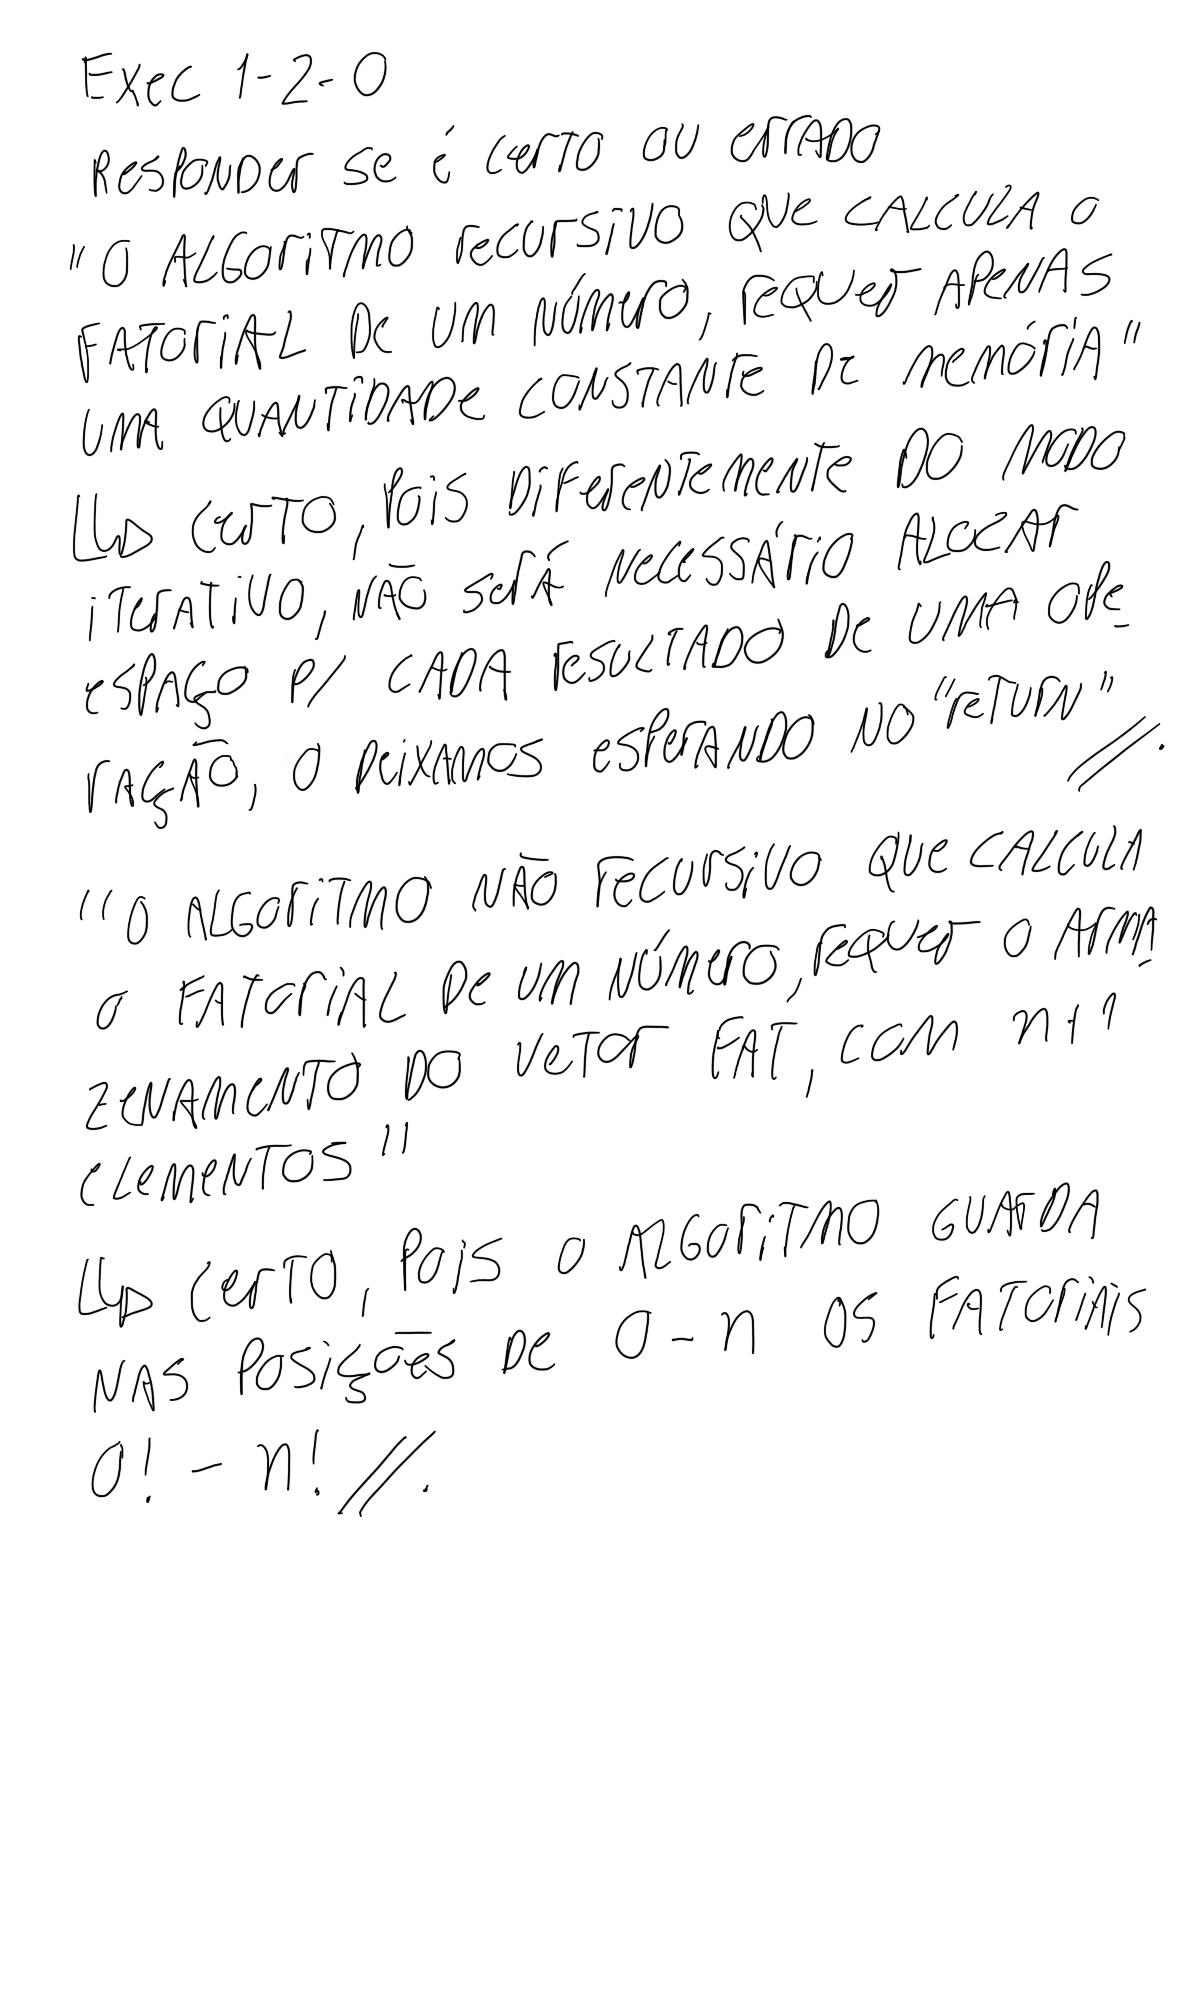 Exec 1-2-0
Responder se é certo ou errado
"O ALGORITMO recursivo QUE CALCULA O
FATORIAL De UM NÚMERO, requer APENAS
UMA QUANTIDADE CONSTANTE De MEMÓRIA"
↳ Certo, Pois DiFerentemente DO MODO
iterativo, NÃO será Necessário ALOCAR
espaço p/ CADA resultado De UMA OPe-
ração, O Deixamos esperando NO "return" //.
"O ALGORITMO NÃO recursivo QUE CALCULA
O FATORIAL De UM NÚMERO, requer O ARMA-
ZENAMENTO DO Vetor FAT, com n+1
elementos"
↳ Certo, Pois O ALGORITMO GUARDA
NAS Posições De 0 - n OS FATORIAIS
0! - n! //.